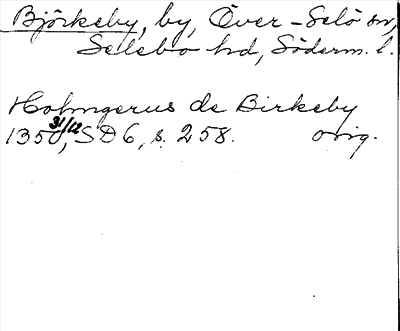 Björkeby, by, Över-Selö sn,
Selebo hd, Söderm. l.
Holmgerus de Birkeby
1350 31/12, SD6, s. 258. orig.